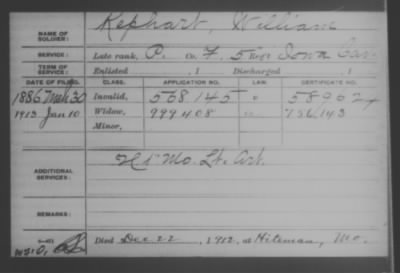 NAME OF SOLDIER: Rephart, William
SERVICE: Late rank, P. Co. F. 5 Reg't Iowa Cav.
TERM OF SERVICE: Enlisted , 1 Discharged , 1
DATE OF FILING. CLASS. APPLICATION NO. LAW. CERTIFICATE NO.
1886 Mch 30 Invalid, 568.145 589624
1913 Jan 10 Widow, 999408 756,143
Minor,
ADDITIONAL SERVICES: H 1" Mo. Lt. Art.
REMARKS:
Died Dec 22, 1912, at Hiteman, Mo.